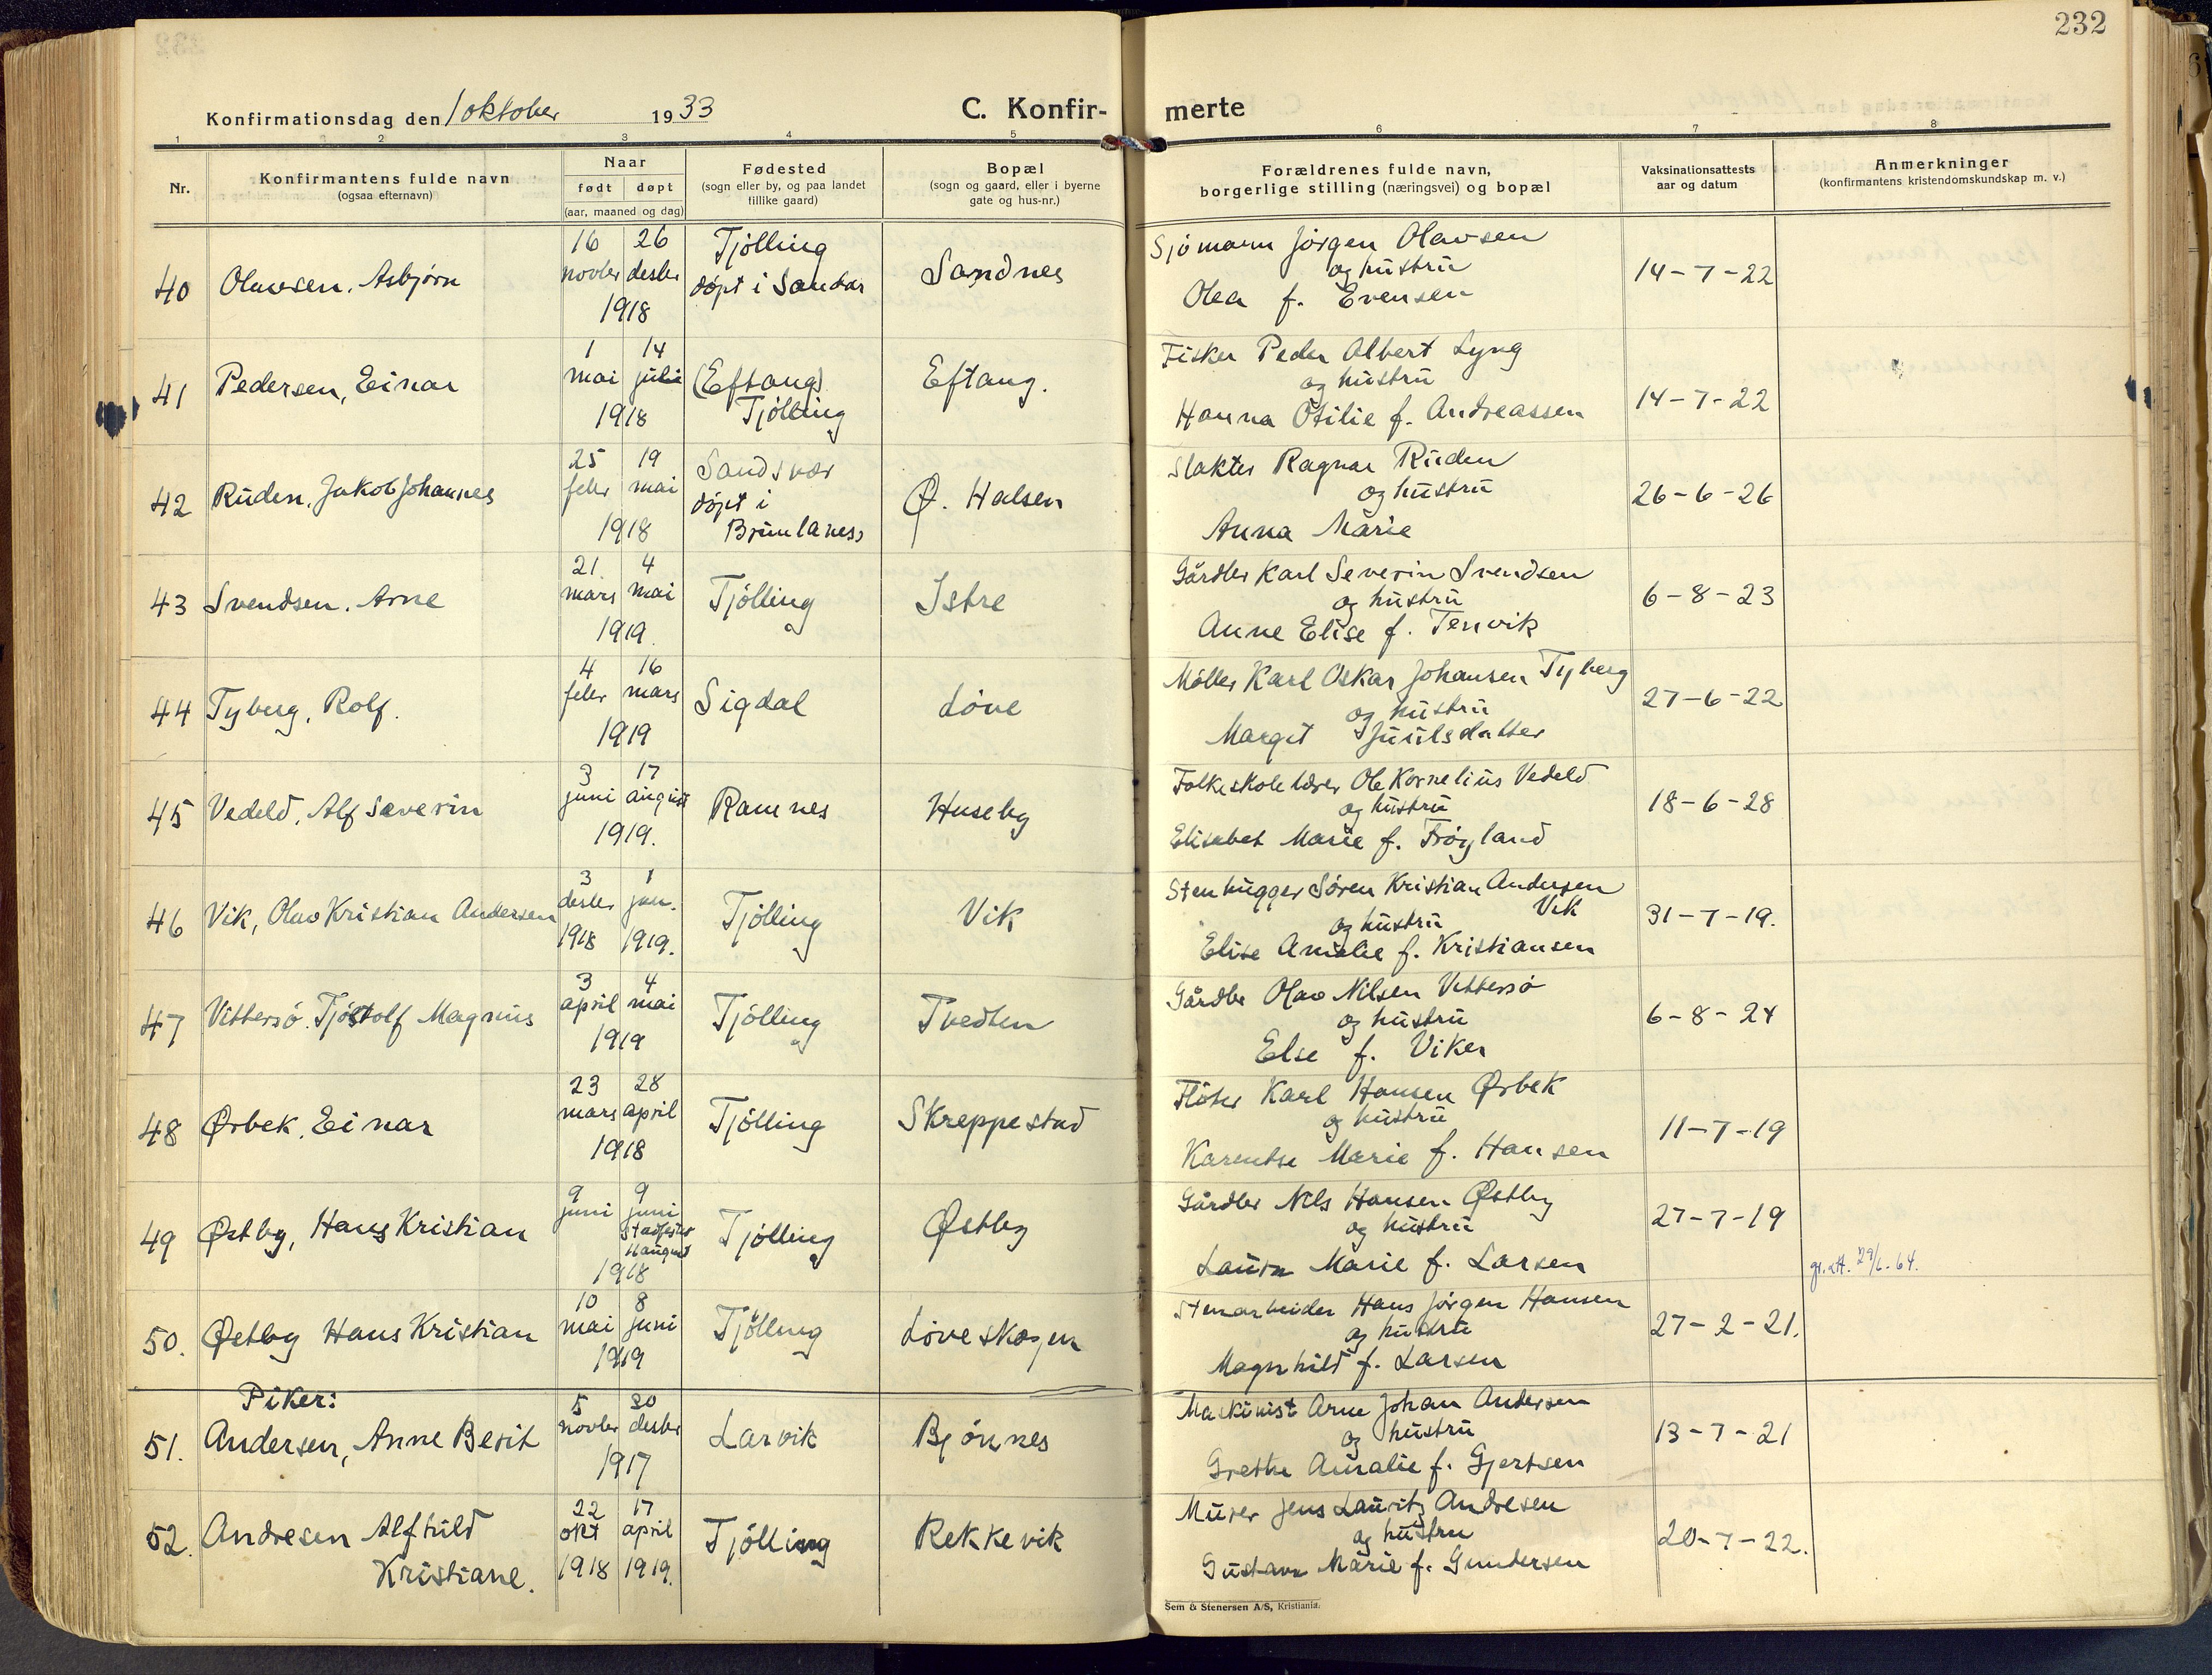 232
Konfirmationsdag den 1 oktober 1933
C. Konfir-
merte
1 2 3 4 5 6 7 8
Nr.
Konfirmantens fulde navn
(ogsaa efternavn)
Naar
født døpt
(aar, maaned og dag)
Fødested
(sogn eller by, og paa landet
tillike gaard)
Bopæl
(sogn og gaard, eller i byerne
gate og hus-nr.)
Forældrenes fulde navn,
borgerlige stilling (næringsvei) og bopæl
Vaksinationsattests
aar og datum
Anmerkninger
(konfirmantens kristendomskundskap m. v.)
40 Olavsen, Asbjørn
16 novber 26 desber 1918
Tjølling
døpt i Sandar
Sandnes
Sjömann Jørgen Olavsen
og hustru
Olea f. Evensen
14-7-22
41 Pedersen, Einar
1 mai 14 juli 1918
(Eftang)
Tjølling
Eftang.
Fisker Peder Albert Lyng
og hustru
Hanna Otilie f. Andreassen
14-7-22
42 Ruden, Jakob Johannes
25 feber 19 mai 1918
Sandsvær
døpt i
Brunlanes
Ø. Halsen
Slakter Ragnar Ruden
og hustru
Anna Marie
26-6-26
43 Svendsen, Arne
21. mars 4 mai 1919.
Tjølling
Istre
Gårdbr Karl Severin Svendsen
og hustru
Anne Elise f. Tenvik
6-8-23
44 Tyberg, Rolf.
4 feber 16 mars 1919
Sigdal
Løve
Møller Karl Oskar Johansen Tyberg
og hustru
Margit Juulsdatter
27-6-22
45 Vedeld, Alf Severin
3 juni 17 august 1919.
Ramnes
Huseby
Folkeskolelærer Ole Kornelius Vedeld
og hustru
Elisabet Marie f. Frøyland
18-6-28
46 Vik, Olav Kristian Andersen
3 desber 1918 1 jan. 1919.
Tjølling
Vik
Stenhugger Søren Kristian Andersen
Vik
og hustru
Elise Amalie f. Kristiansen
31-7-19.
47 Vittersø, Tjøstolf Magnus
3 april 4 mai 1919
Tjølling
Tvedten
Gårdbr Olav Nilsen Vittersø
og hustru
Else f. Viker
6-8-24
48 Ørbek, Einar
23 mars 28 april 1918
Tjølling
Skreppestad
Fløter Karl Hansen Ørbek
og hustru
Karentse Marie f. Hansen
11-7-19
49 Østby, Hans Kristian
9 juni 9 juni
stadfestet
11 august
1918
Tjølling
Østby
Gårdbr Nils Hansen Østby
og hustru
Laura Marie f. Larsen
27-7-19
50. Østby Hans Kristian
10 mai 8 juni 1919
Tjølling
Løveskogen
Stenarbeider Hans Jørgen Hansen
og hustru
Magnhild f. Larsen
27-2-21.
Piker:
51. Andersen, Anne Berit
5 novber 30 desber 1917
Larvik
Bjønnes
Maskinist Arne Johan Andersen
og hustru
Grethe Amalie f. Gjertsen
13-7-21
52. Andresen Alfhild
Kristiane.
22 okt 1918 17 april 1919.
Tjølling
Rekkevik
Murer Jens Lauritz Andresen
og hustru
Gustava Marie f. Gundersen
20-7-22.
Sem & Stenersen A/S, Kristiania.